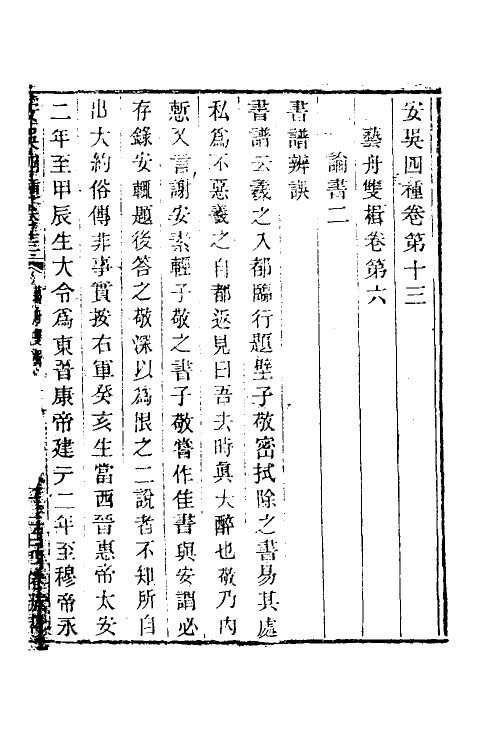 安吳四種卷第十三
藝舟雙楫卷第六
論書二
書譜辨誤
書譜云羲之入都臨行題壁子敬密拭除之書易其處
私爲不惡羲之自都返見曰吾去時眞大醉也敬乃內
慙又言謝安素輕子敬之書子敬嘗作佳書與安謂必
存錄安輒題後答之敬深以爲恨之二說者不知所自
出大約俗傳非事實按右軍癸亥生當西晉惠帝太安
二年至甲辰生大令爲東晉康帝建元二年至穆帝永